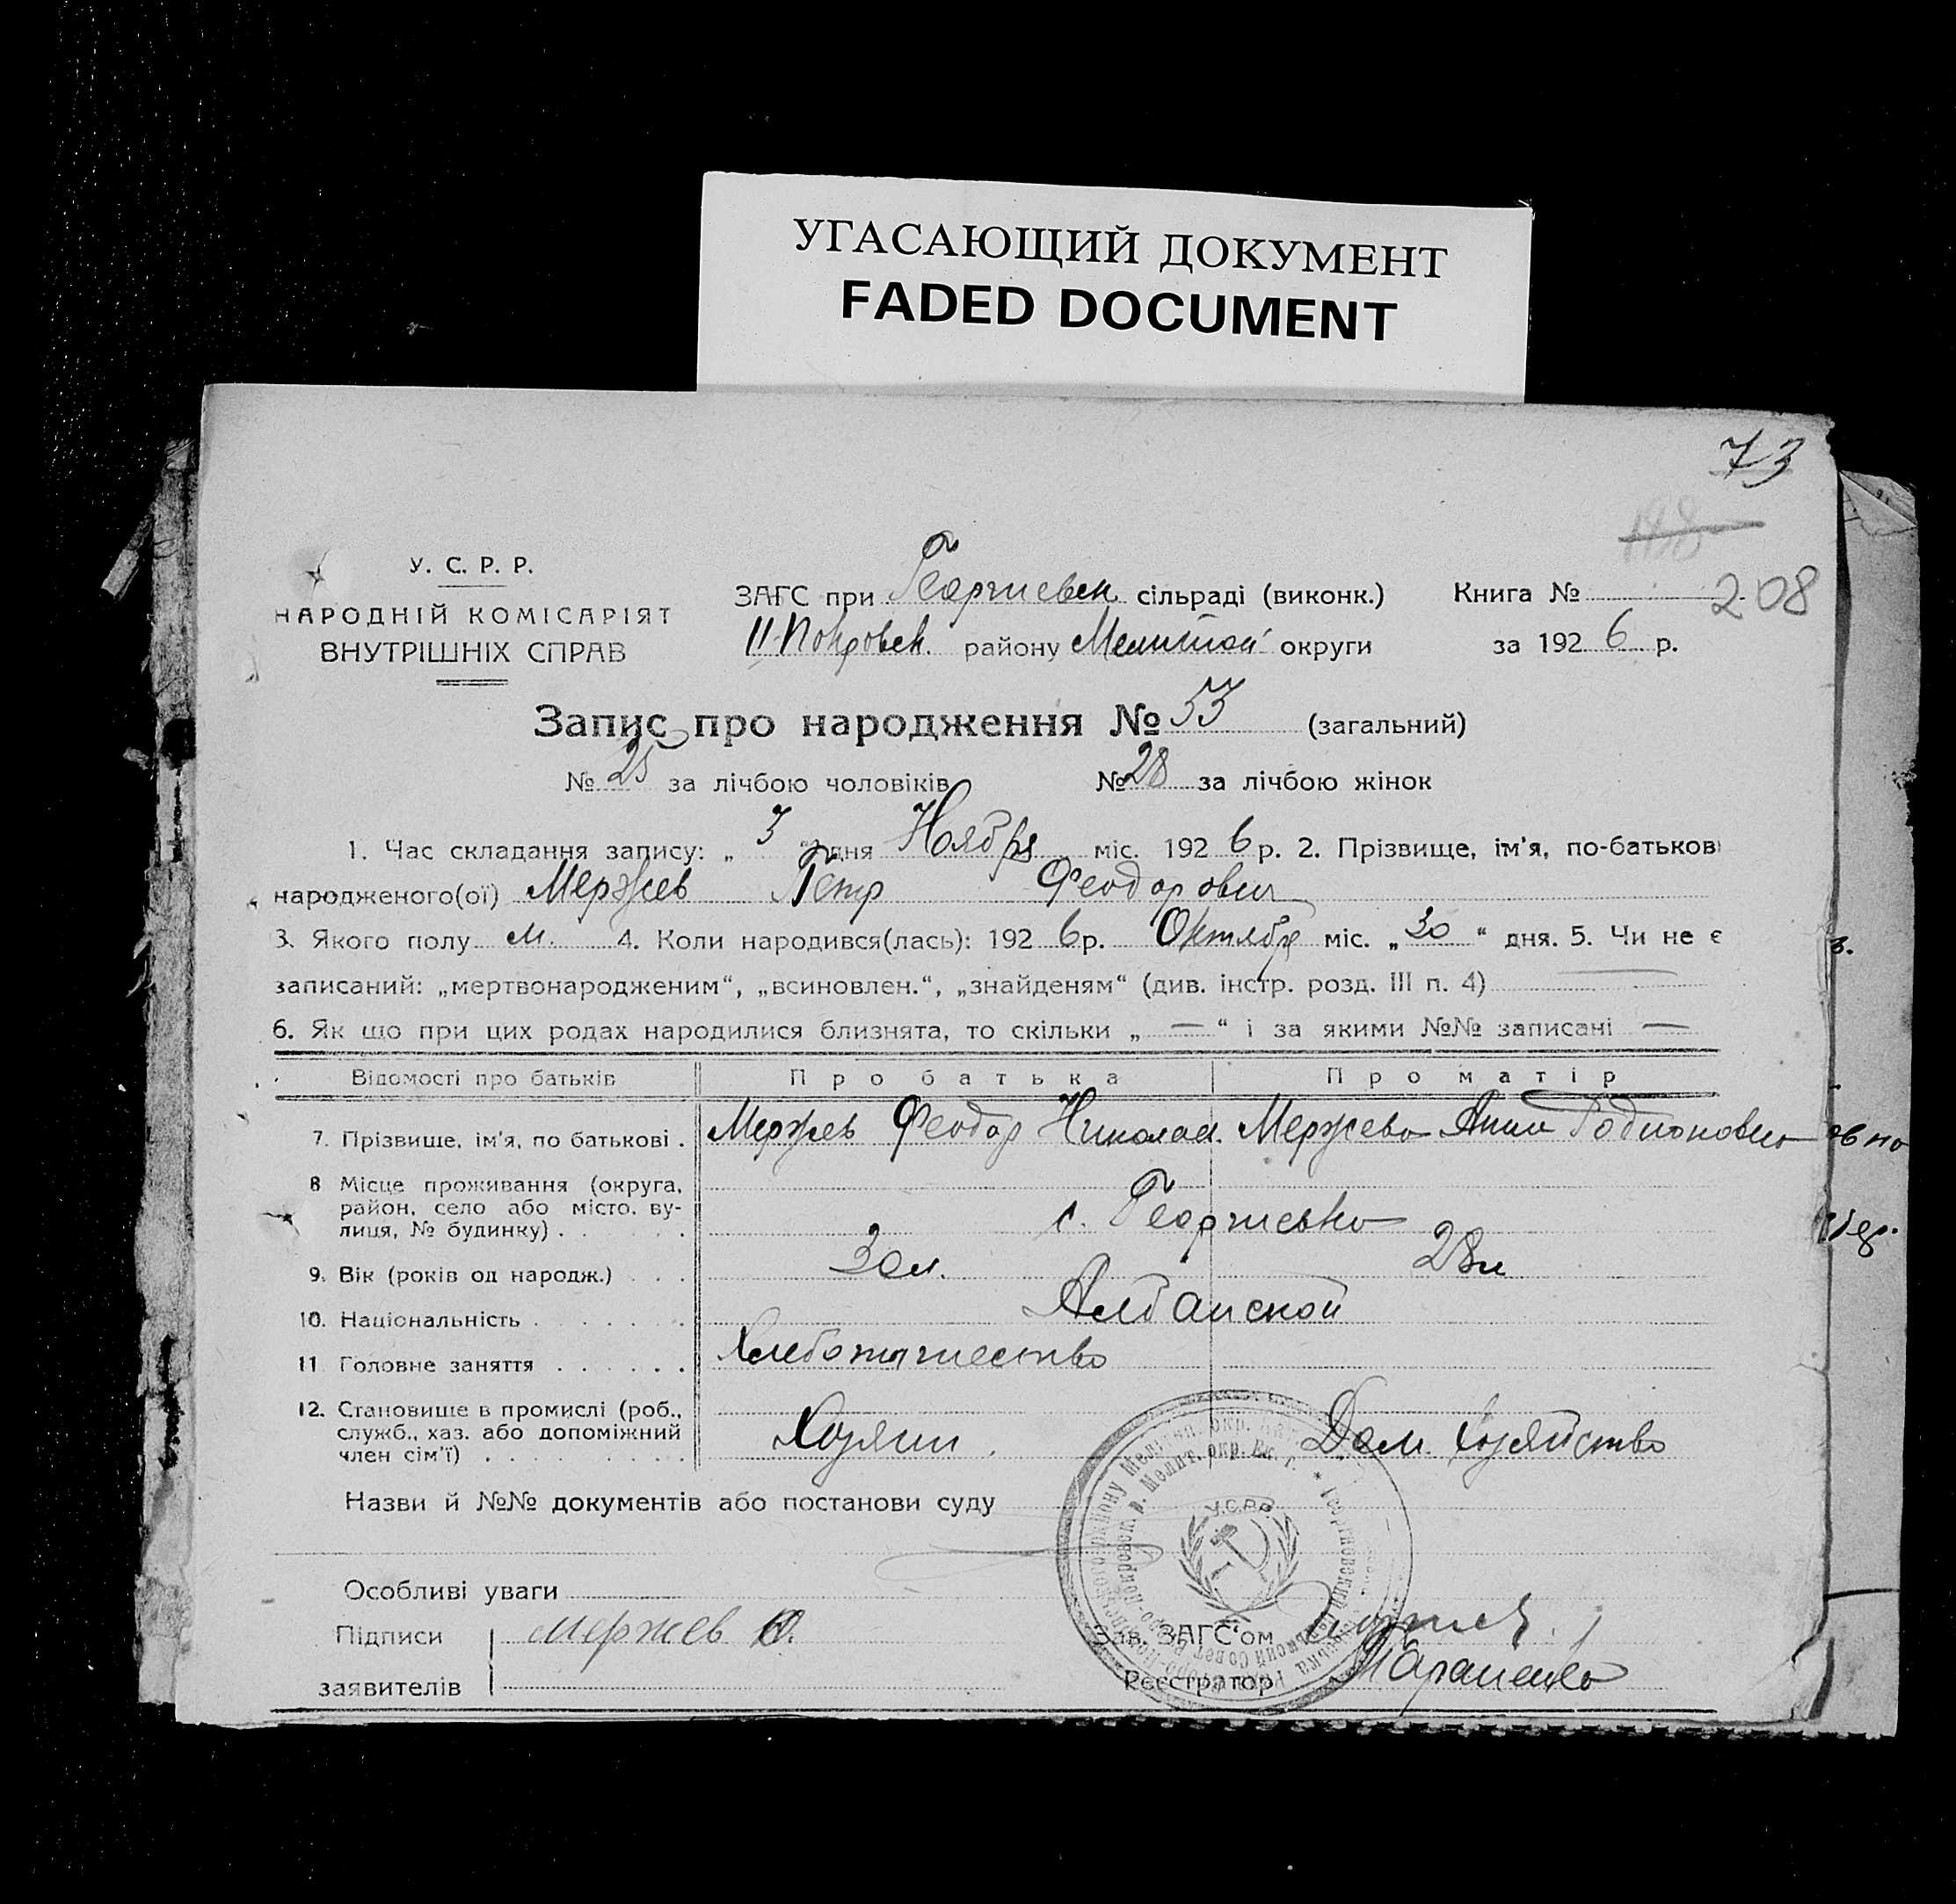 УГАСАЮЩИЙ ДОКУМЕНТ
FADED DOCUMENT
73
208
У. С. Р. Р.
НАРОДНІЙ КОМІСАРІЯТ
ВНУТРІШНІХ СПРАВ
ЗАГС при Георгиевск сільраді (виконк.)
П-Покровск. району Мелитой округи
Книга №
за 1926 р.
Запис про народження № 53 (загальний)
№ 25 за лічбою чоловіків № 28 за лічбою жінок
1. Час складання запису: „ 3 " дня Ноября міс. 1926 р. 2. Прізвище, ім'я, по-батькові
народженого(ої) Мержев Петр Феодорович
3. Якого полу м. 4. Коли народився(лась): 1926 р. Октября міс. „ 30 " дня. 5. Чи не є
записаний: „мертвонародженим", „всиновлен.", „знайденям" (див. інстр. розд. III п. 4)
6. Як що при цих родах народилися близнята, то скільки „ — " і за якими №№ записані —
Відомості про батьків Про батька Про матір
7. Прізвише, ім'я, по батькові . Мержев Феодор Николаев. Мержева Анна Родионовна
8 Місце проживання (округа,
район, село або місто, ву-
лиця, № будинку) . с. Георгиевка
9. Вік (років од народж.) 30 л. 28 л
10. Національність Албанской
11 Головне заняття Хлебопашество
12. Становище в промислі (роб.,
служб., хаз. або допоміжний
член сім'ї) Хозяин. Дом. хозяйство
Назви й №№ документів або постанови суду
У.С.Р.Р.
Особливі уваги
Підписи Мержев Ф.
заявителів
Зав. ЗАГС'ом
Реєстратор